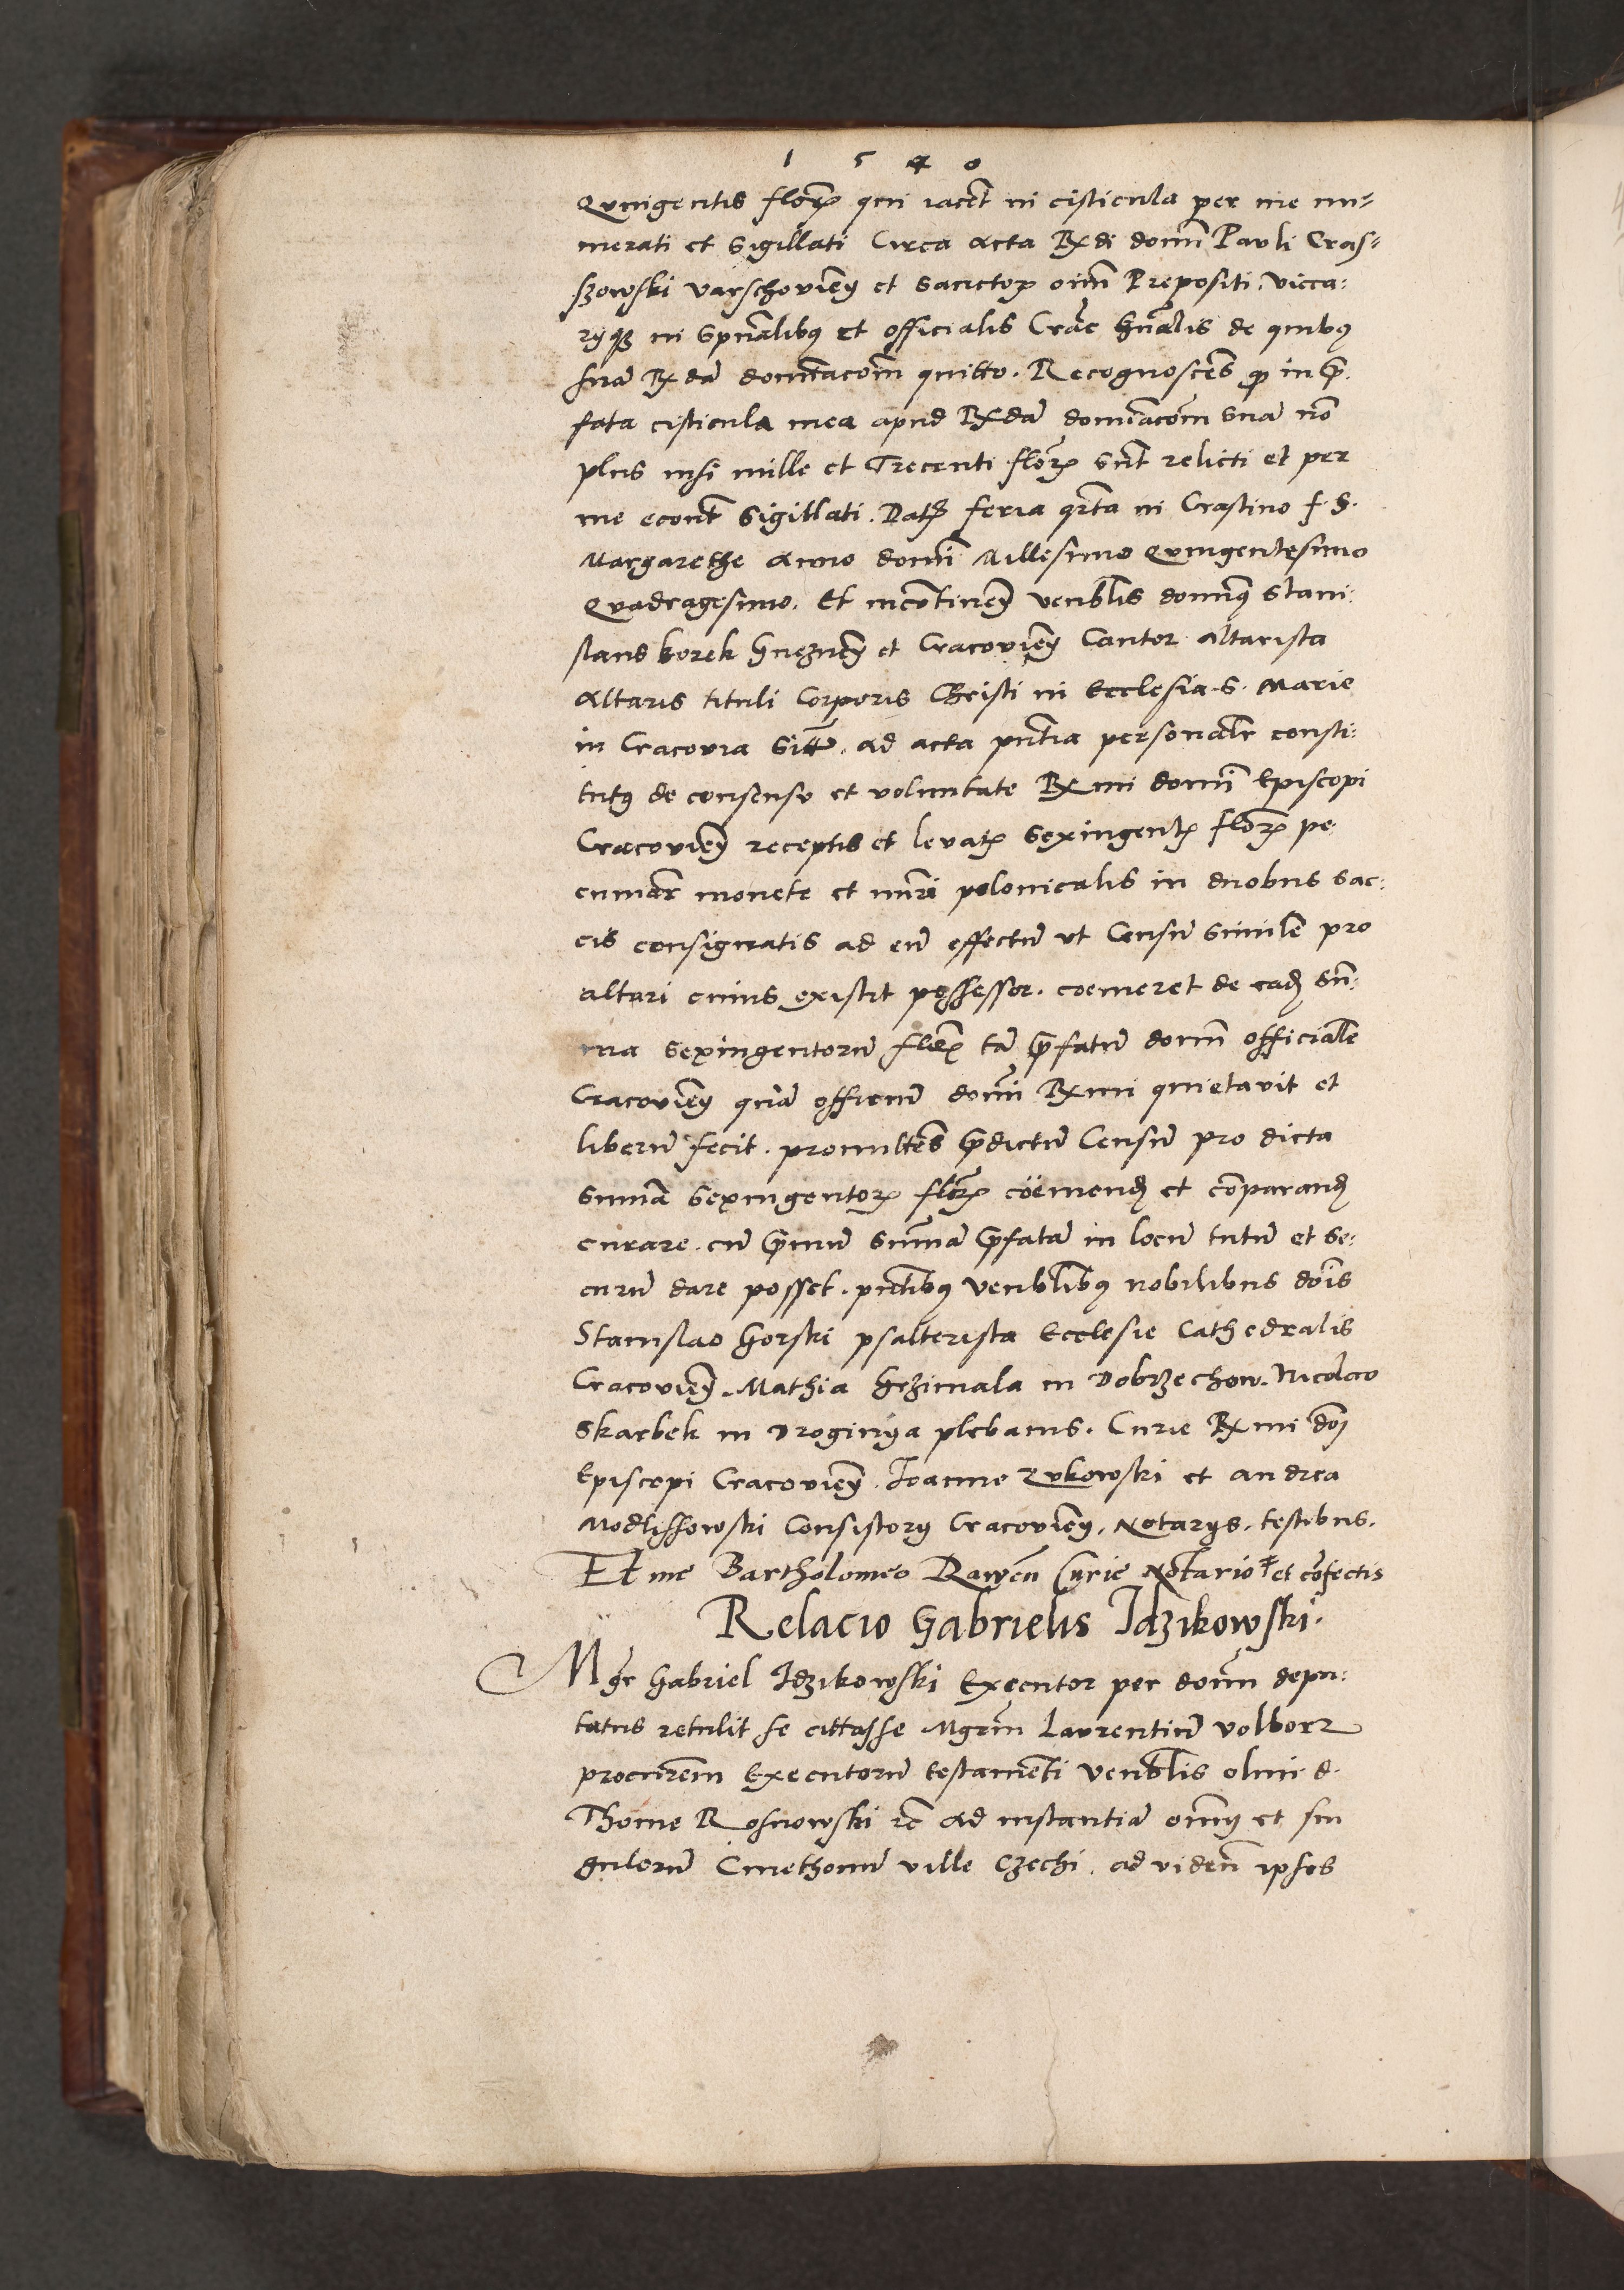 1 5 4 0
Quingentis florꝭ qui iacēt in cisticula per me nu⸗
merati et sigillati Circa acta Rx̃di domī Pauli Cras⸗
szowski varschovieñ et sanctoꝝ oim̄ Prepositi, vicca:
rijqꝫ in spūalibꝰ et officialis Crac̄ gñalis de quibꝰ
suā Rx̃dā domīacōm quitto. Recognoscēs ꝙ in p̄.
fata cisticula mea apud Rx̃dā domīacōm suā nō
plus nisi mille et Trecenti florꝭ sūt relicti et per
me ecōnt sigillati. Datꝫ feria qrta in Crastino f. S.
Margarethe Anno domī Millesimo Quingentesimo
Quadragesimo. Et incōtineñ venblis domīꝰ Stani:
slaus borek gneznen̄ et Cracovień Cantor altarista
Altaris tituli Corporis Christi in Ecclesia. S. Marie
in Cracovia sitꝭ. ad acta pn̄tia personalr̄ consti:
tutꝰ de consensu et voluntate Rx̃mi domī Episcopi
Cracovień receptis et levatꝭ sexingentꝭ florꝭ pe
cuniar̄ monete et nūri polonicalis in duobus sac:
cis consignatis ad eū effectū ut Censū similē pro
altari cuius existit possessor. coemeret de eadꝫ sū:
ma sexingentorū florꝭ tā p̄fatū domī officialē
Cracovień quā officiū domī Rx̃mi quietavit et
liberū fecit. promittēs p̄dictū Censū pro dicta
summa sexingentoꝝ florꝭ cöemendꝫ et cōparandꝫ
curare. cū p̄mū sūmā p̄fatā in locū tutū et se:
curū dare posset. pn̄tibꝰ venblibꝰ nobilibus dōis
Stanislao Gorski psalterista Ecclesie Cathedralis
Cracovień. Mathia Grzimala in Dobrzechow. Nicolao
Skarbek in Droginya plebanis. Curie Rx̃mi dōi
Episcopi Cracovień. Joanne Zukowski et Andrea
Modlissowski Consistorij Cracovień. Notarijs. testibus.
Et me Bartholomeo Rawen̄ Curie Notario et cōfectis
Relacio Gabrielis Idzikowski.
Mgr̄ Gabriel Idzikowski Executor per dōim depu:
tatus retulit se cittasse Mgrm̄ Laurentiū volborz
procurēm Executorū testamēti venblis olim d.
Thome Rosnowski ꝛc̄ ad instantiā oim̄ et sin
gulorū Cmethonū ville Czechi. ad viden̄ ipsos